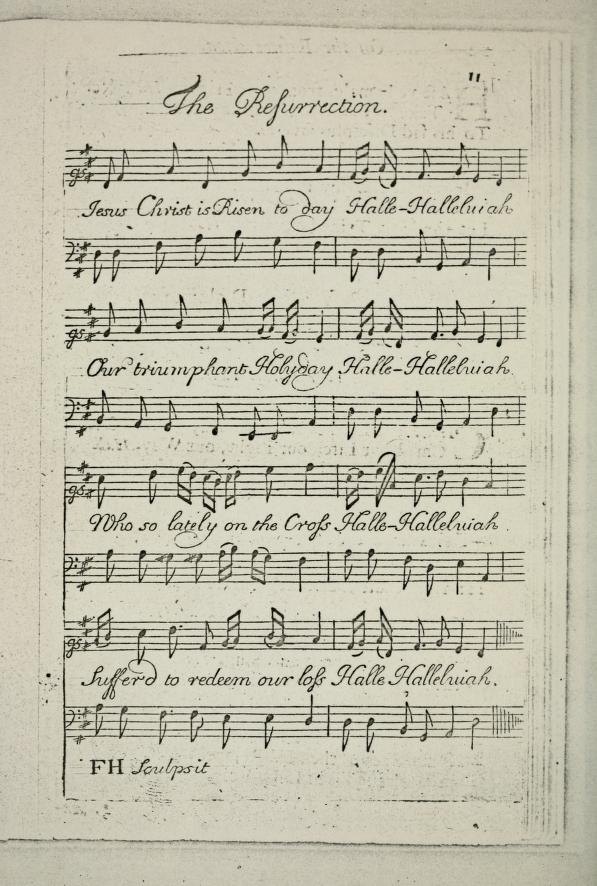 11
The Reſurrection.
Iesus Christ is Risen to day Halle-Halleluiah
Our triumphant Holyday Halle-Halleluiah
Who so lately on the Croſs Halle-Halleluiah
Sufferd to redeem our loſs Halle Halleluiah.
FH Sculpsit